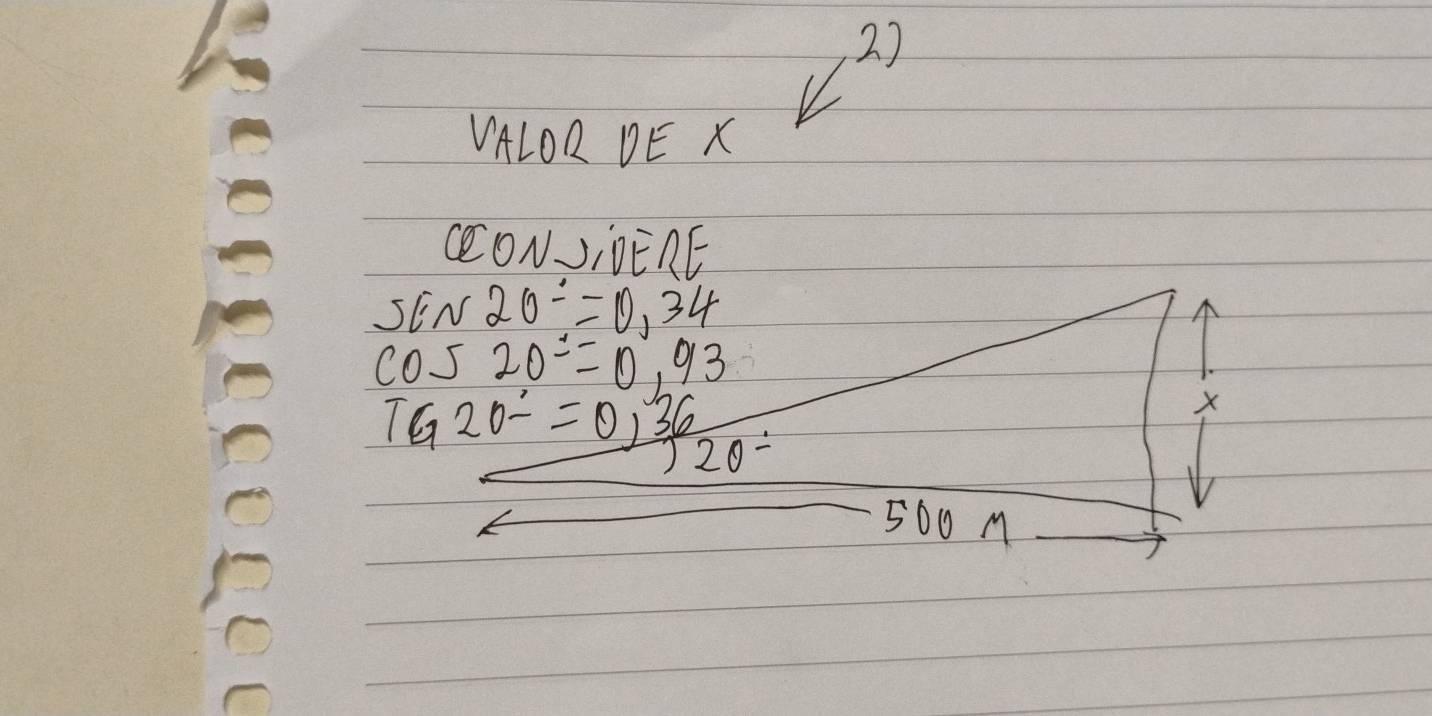 2)
VALOR DE X
CONSIDERE
SEN 20° = 0,34
COS 20° = 0,93
TG 20° = 0,36
20°
x
500 M